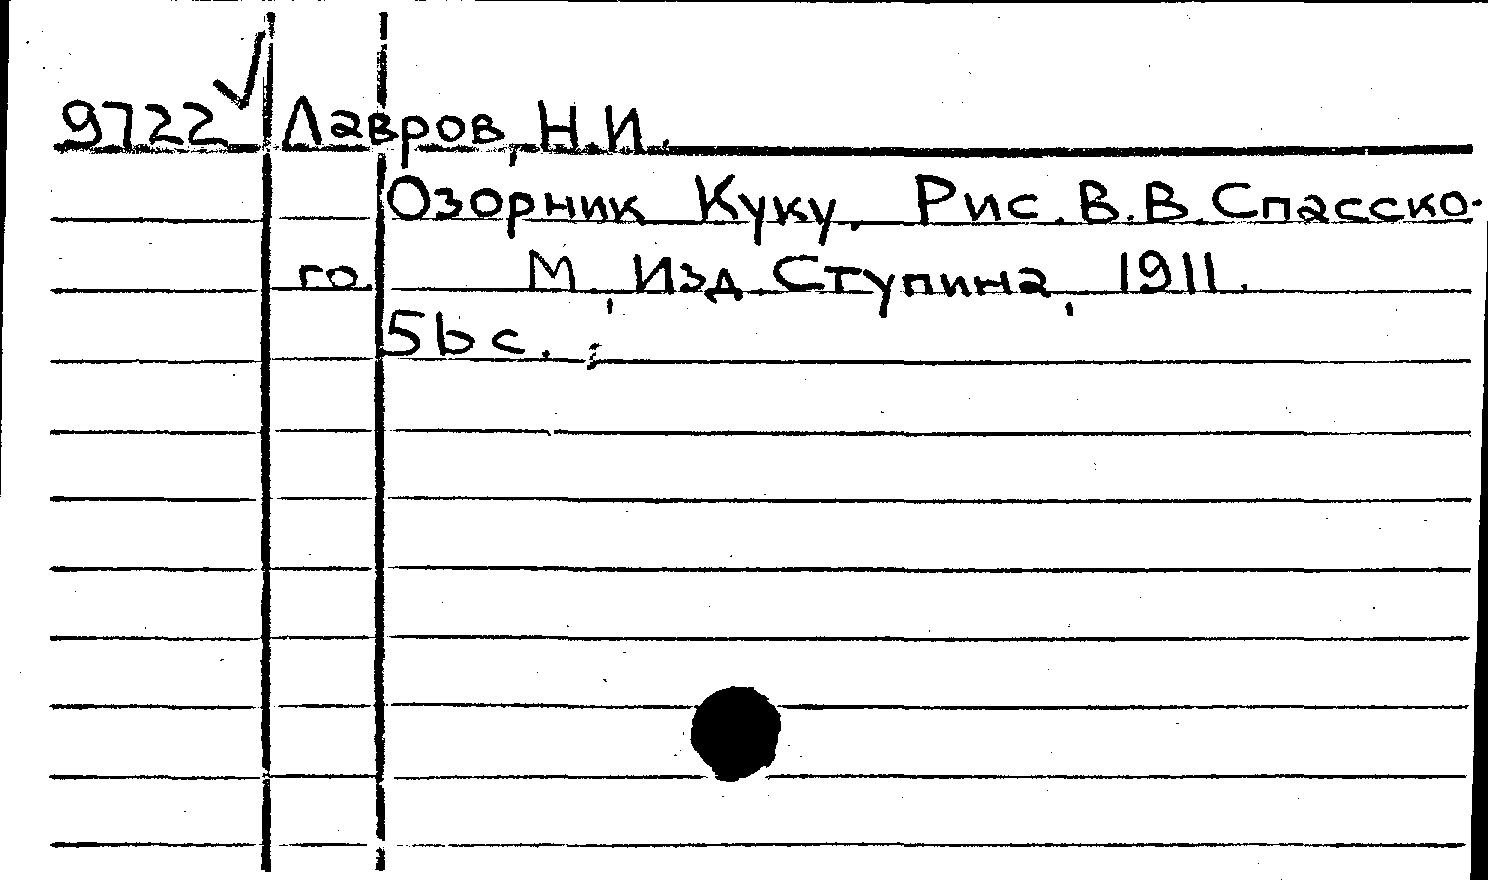 9722 Лавров, Н.И.
Озорник Куку. Рис. В.В. Спасско-
го. М., Изд. Ступина, 1911.
56 с.